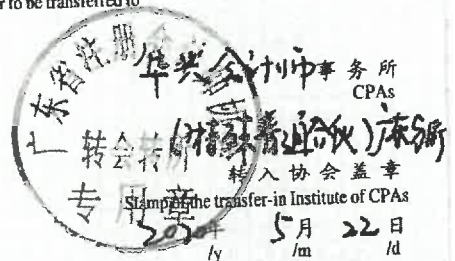 r to be transferred to
华兴会计师事务所
CPAs
(特殊普通合伙)广东分所
转入协会盖章
Stamp of the transfer-in Institute of CPAs
2020年 5月 22日
/y /m /d
广东省注册会
转会转所
专用章